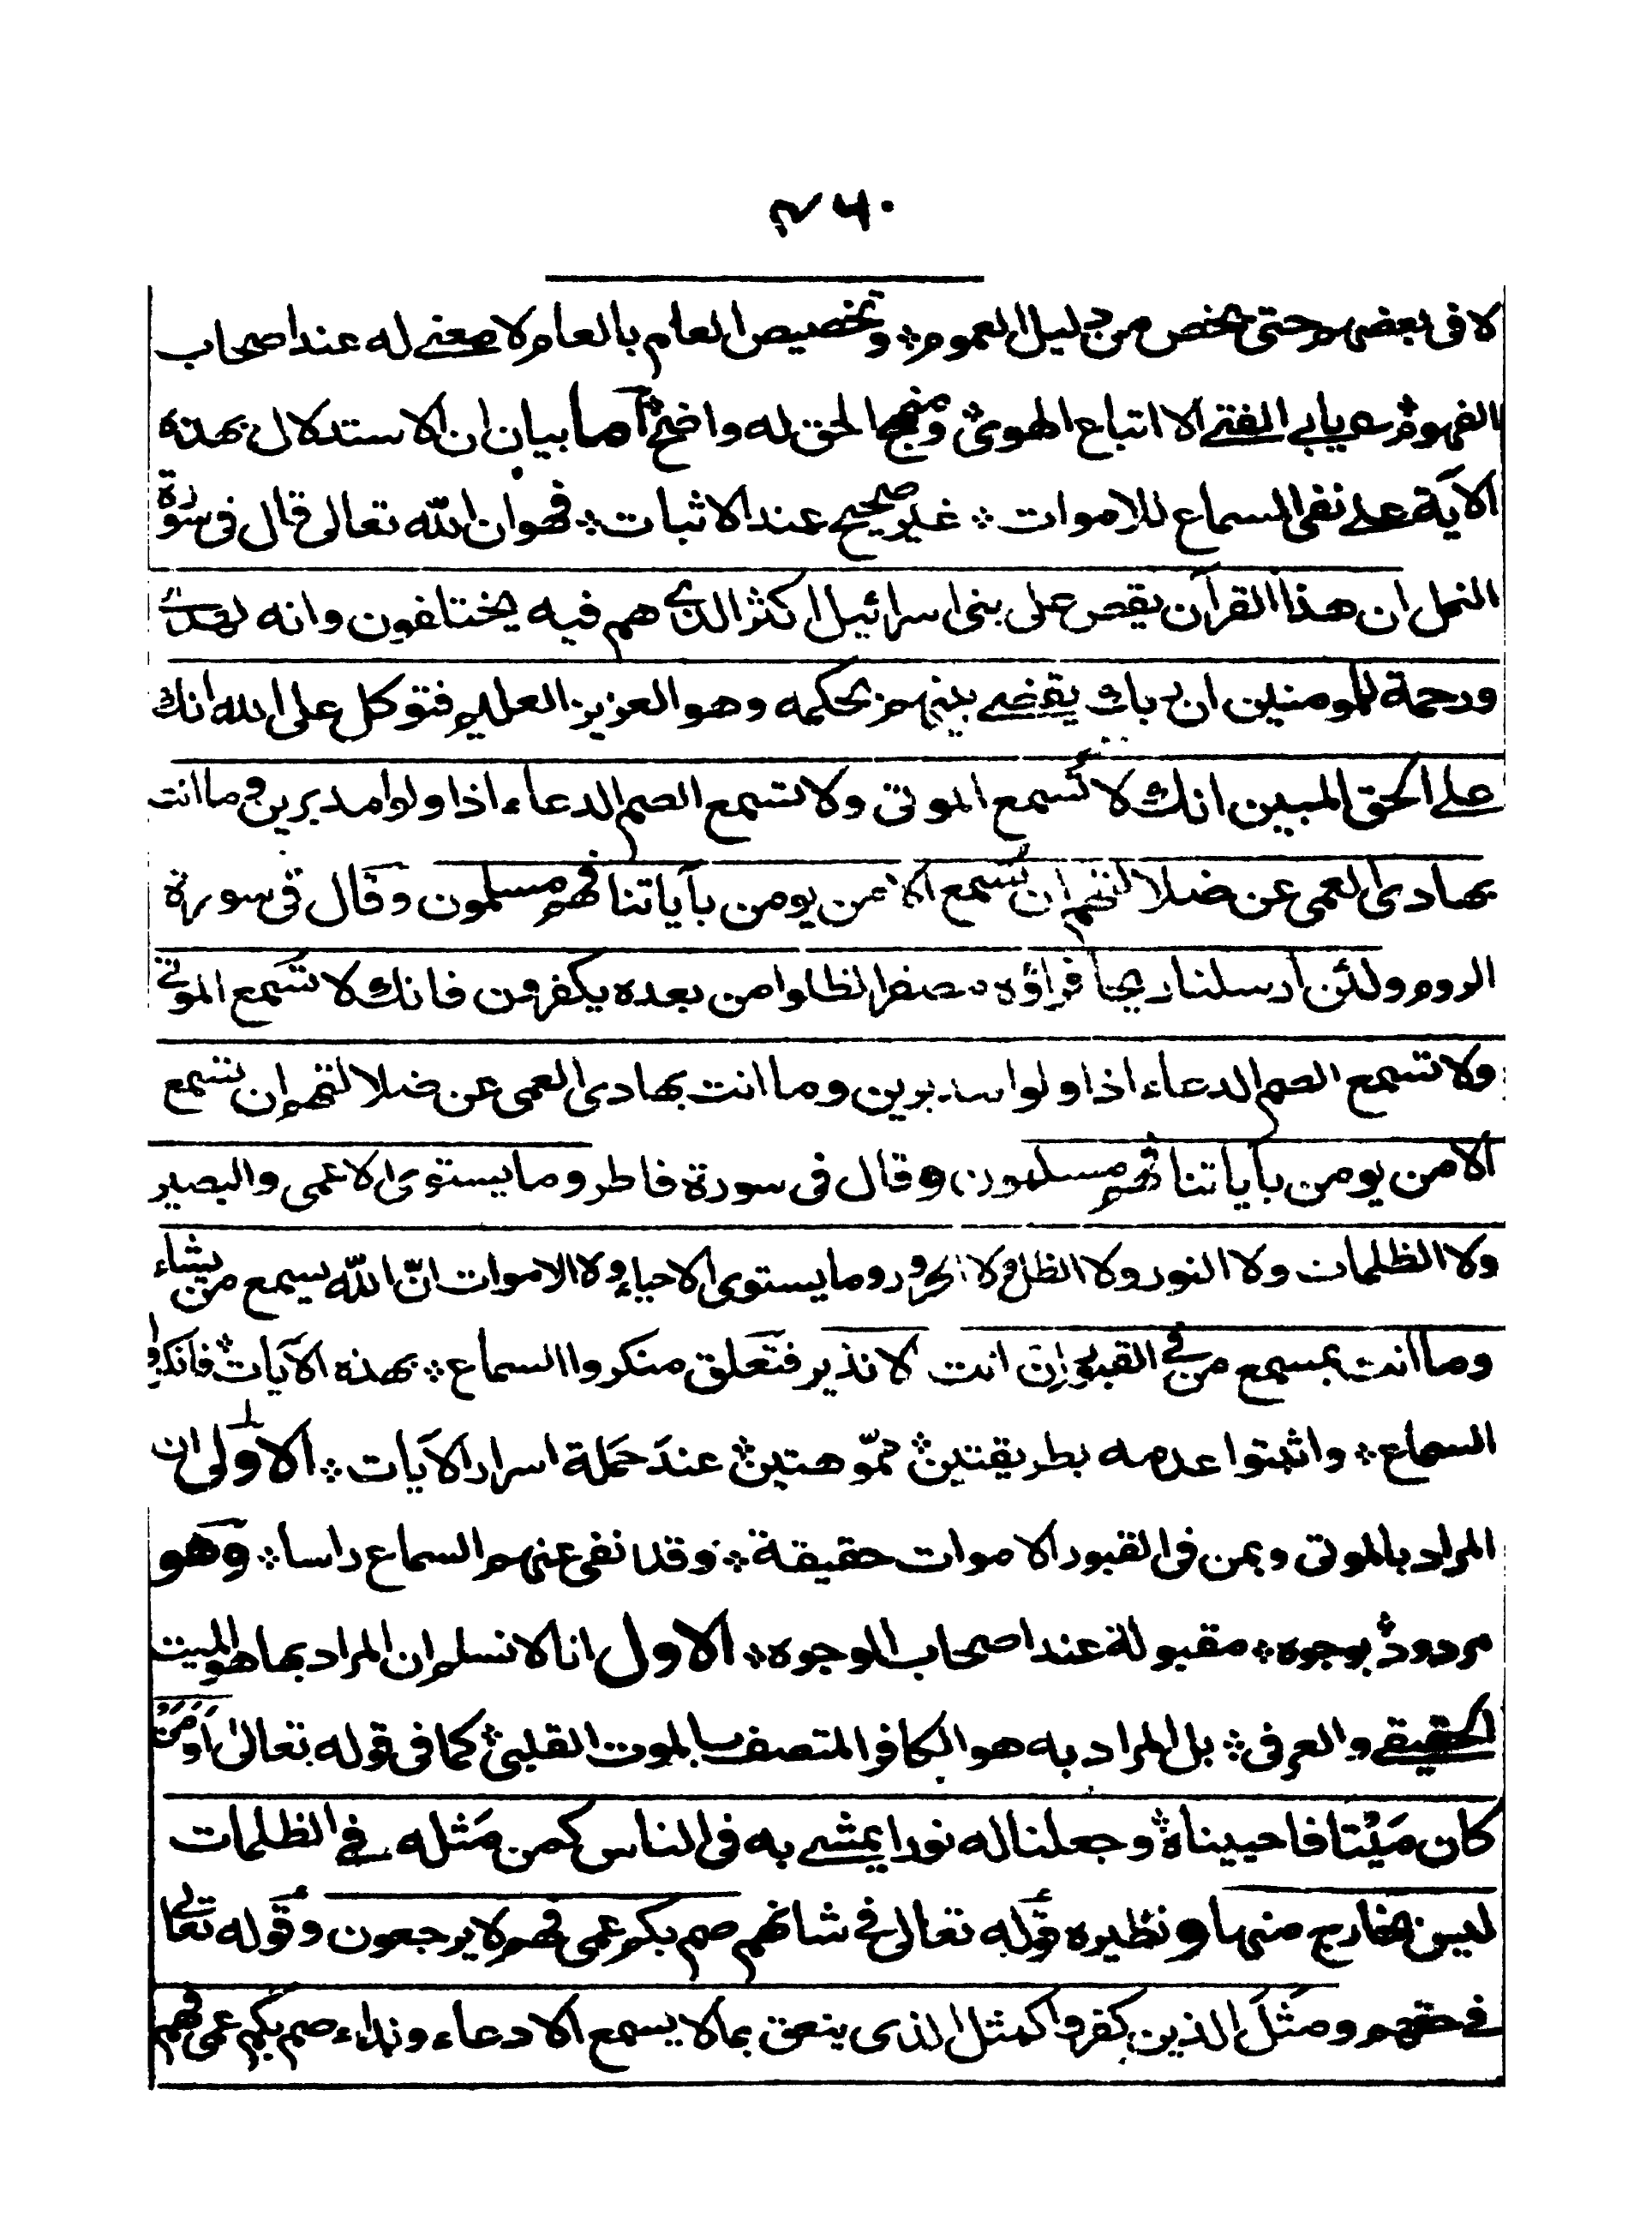 ٤٦٠
لا فى بعضهم حتى يخص من دليل العموم ؞ وتخصيص العام بالعام لا معنے له عند اصحاب
الفهوم؞ يابى المفتے الا اتباع الهوى؞ ومنهج الحق له واضح؞ أما بيان ان الاستدلال بهذه
الآية علے نفى السماع للاموات ؞ غير صحيح عند الاثبات ؞ فهو ان اللّه تعالى قال فى سورة
النمل ان هذا القرآن يقص على بنى اسرائيل اكثر الذى هم فيه يختلفون وانه لهدى
ورحمة للمومنين ان ربك يقضے بينهم بحكمه وهو العزيز العليم فتوكل على الله انك
علے الحق المبين انك لا تُسمع الموتى ولا تسمع الصم الدعاء اذا ولوا مدبرين وما انت
بهادى العمى عن ضلالتهم ان تُسمع الا من يومن بآياتنا فهم مسلمون وقال فى سورة
الروم ولئن ارسلنا ريحا فراؤه مصفرا لظلوا من بعده يكفرون فانك لا تسمع الموتى
ولا تسمع الصم الدعاء اذا ولوا مدبرين وما انت بهادى العمى عن ضلالتهم ان تسمع
الا من يومن بآياتنا فهم مسلمون وقال فى سورة فاطر وما يستوى الاعمى والبصير
ولا الظلمات ولا النور ولا الظل ولا الحرور وما يستوى الاحياء ولا الاموات انّ اللّه يسمع من يشاء
وما انت بمسمع من فے القبور ان انت الا نذير فتعلق منكروا السماع ؞ بهذه الآيات؞ فانكروا
السماع ؞ واثبتوا عدمه بطريقتين؞ مموّهتين؞ عند حَمَلة اسرار الآيات ؞ الاولى ان
المراد بالموتى وبمن فى القبور الاموات حقيقة ؞ وقد نفى عنهم السماع راسا ؞ وهو
مردود؞ بوجوه ؞ مقبولة عند اصحاب الوجوه ؞ الاول انا لا نسلم ان المراد بها هو الميت
الحقيقے والعرفى ؞ بل المراد به هو الكافر المتصف بالموت القلبى؞ كما فى قوله تعالىٰ أَوَمَنْ
كان مَيْتا فاحييناه؞ وجعلنا له نورا يمشے به فى الناس كمن مَثله فے الظلمات
ليس بخارج منها ونظيره قوله تعالى فے شانهم صم بكم عمى فهم لا يرجعون وقوله تعالى
فے حقهم ومَثَلُ الذين كفروا كمثل الذى ينعق بما لا يسمع الا دعاء ونداء صم بكم عمى فهم